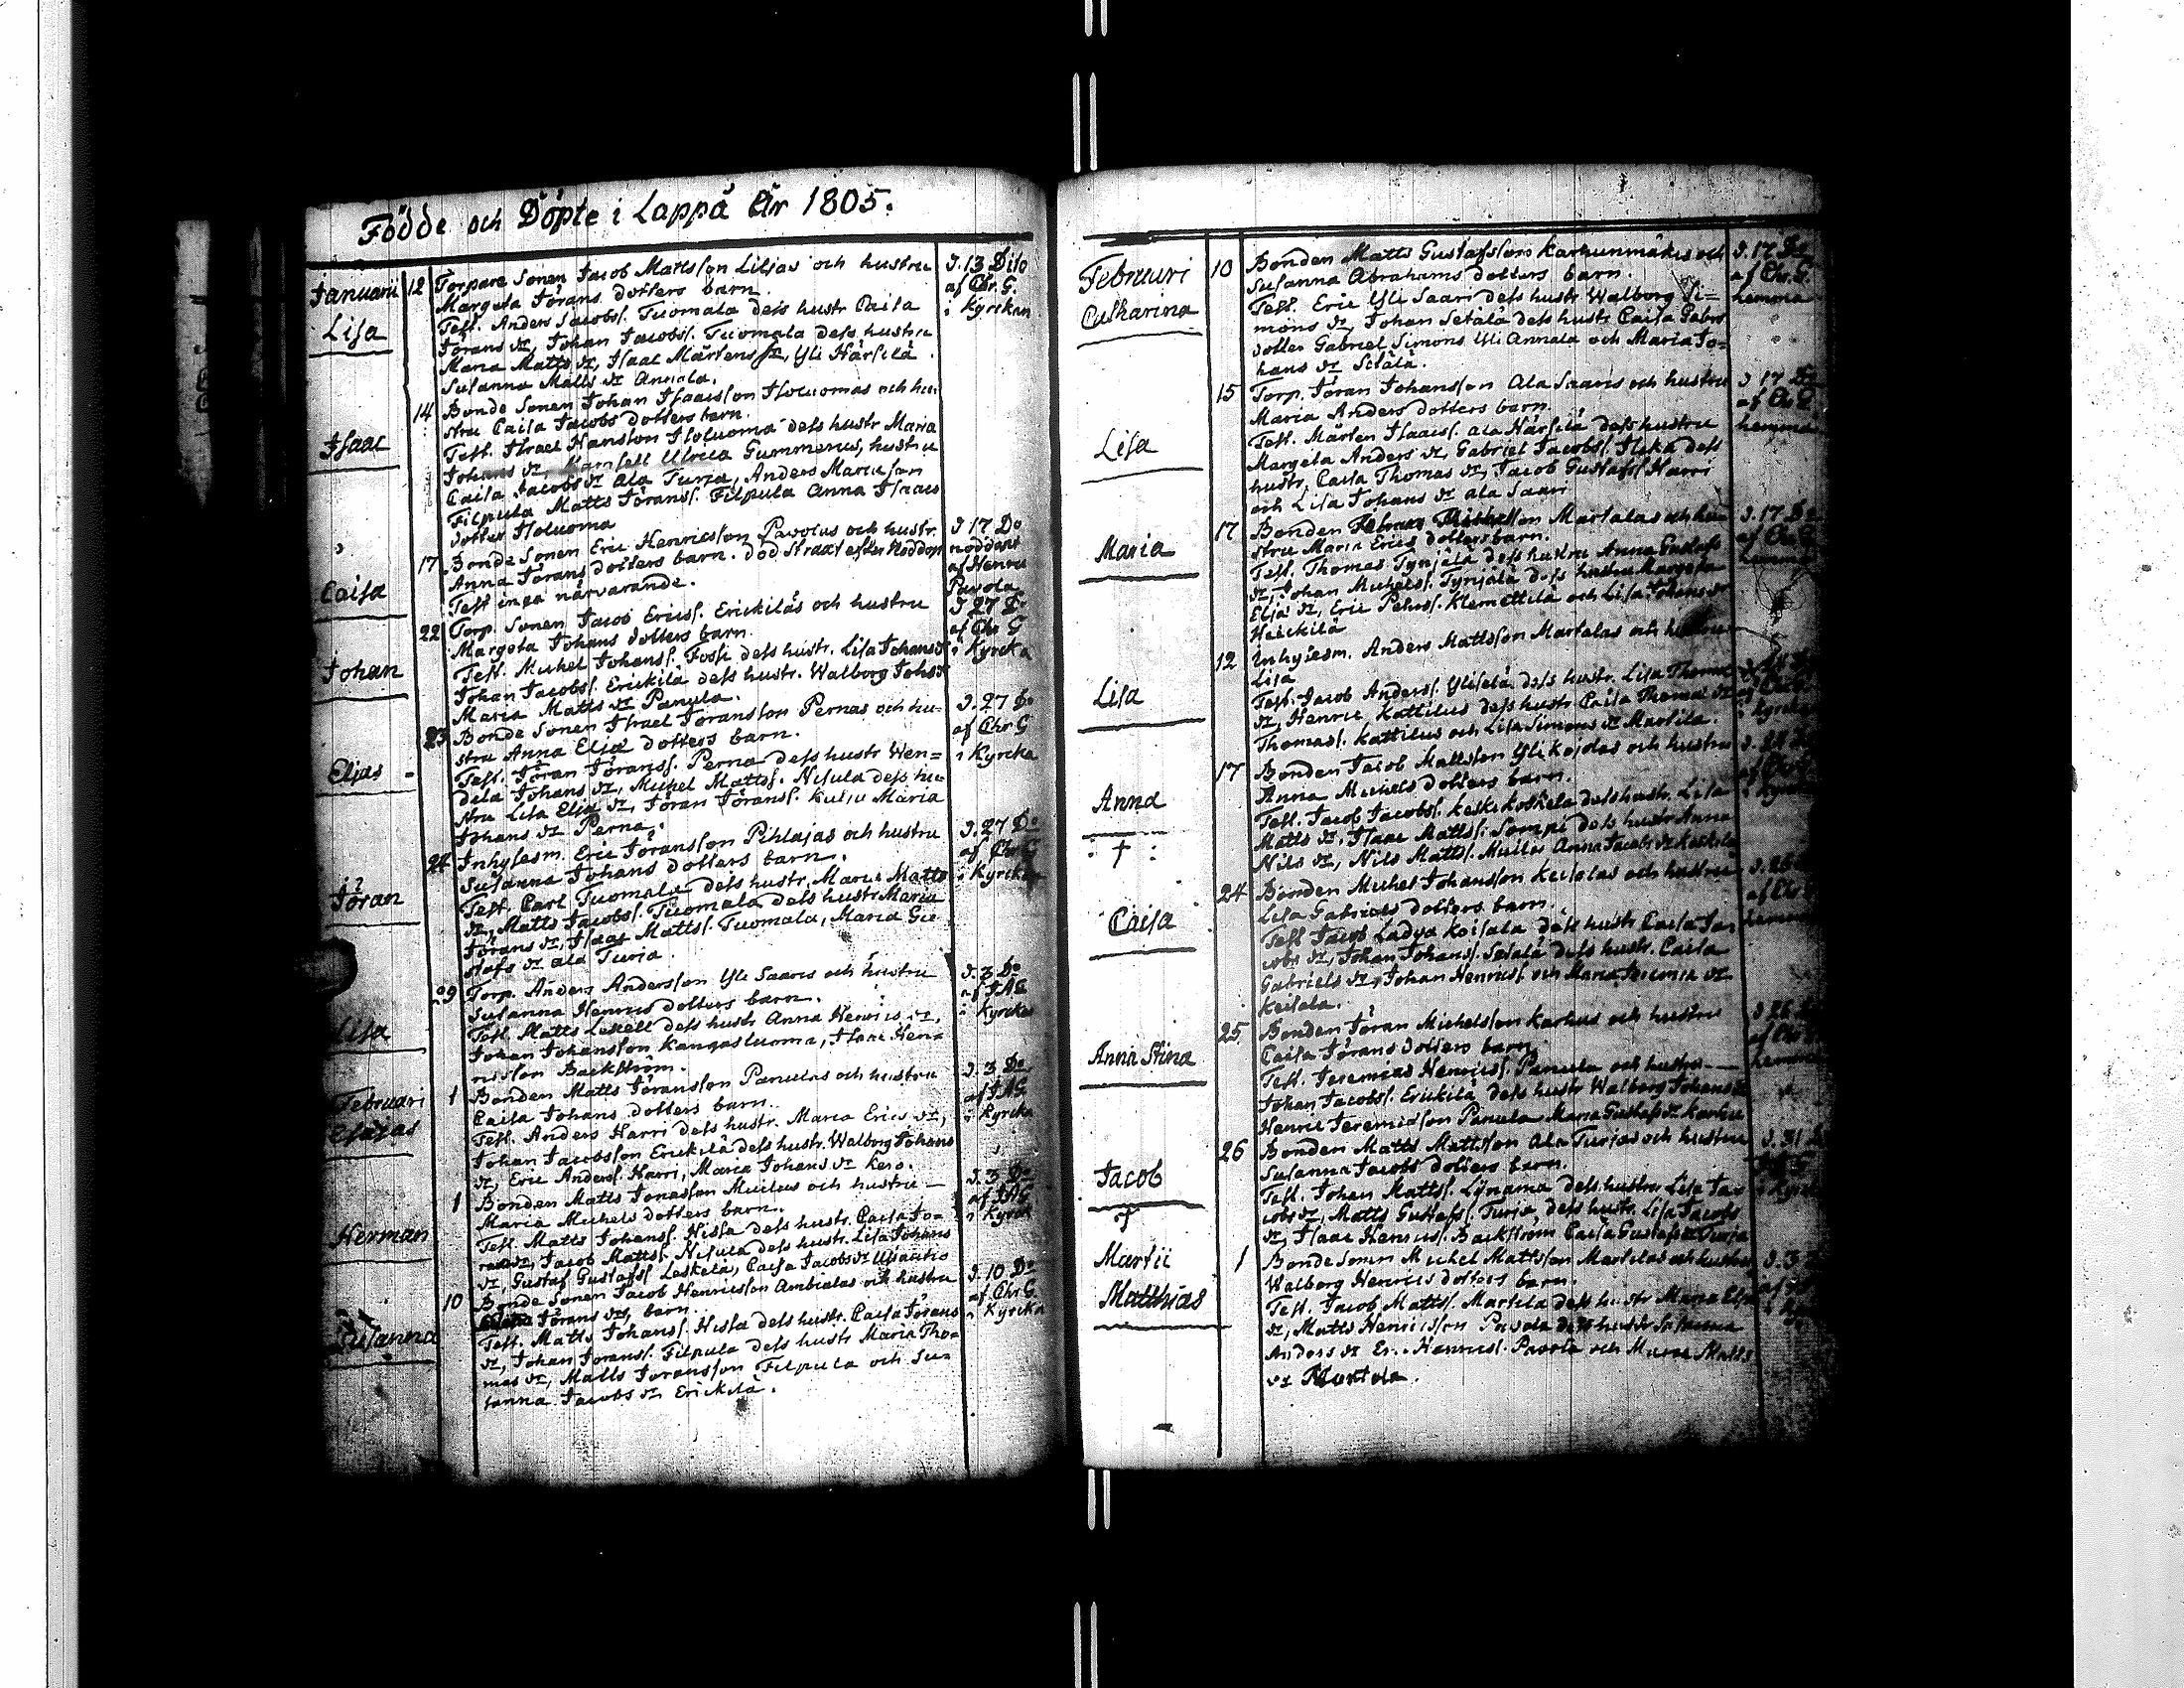 Födde och Döpte i Lappå År 1805.
Januarii 12 Torpare Sonen Jacob Mattsson Liljas och hustru d. 13 Dito
Margeta Jörans dotters barn. af Chr. G.
Lisa Test. Anders Jacobs. Tuomala dess hustr Caisa i Kyrckan
Jörans dr, Johan Jacobs. Tuomala dess hustru
Maria Matts dr, Isaac Mårtens Yli Härsilä
Susanna Matts dr Annala.
14 Bonde Sonen Johan Isaacsson Isoluomas och hu-
stru Caisa Jacobs dotters barn.
Isaac Test. Israel Hansson Isoluoma dess hustr Maria
Johans dr, Mamsell Ulrica Gummerus, hustru
Caisa Jacobs dr Ala Turja, Anders
Filpula Matts Jörans. Filpula Anna Isaacs
dotter Isoluoma
17 Bonde Sonen Eric Henricsson Pavolas och hustr. d 17 Do
Anna Jörans dotters barn. död straxt efter Nöddop nöddöpt
Caisa Test inga närvarande. af Henric
Pavola
22 Torp. Sonen Jacob Erics. Erickiläs och hustru d 27 Do
Margeta Johans dotters barn. af Chr G
Johan Test. Michel Johans. Fossi dess hustr. Lisa Johans dr i Kyrcka
Johan Jacobs. Erickilä dess hustr. Walborg Johs dr
Maria Matts dr Panula.
23 Bonde Sonen Israel Jöransson Pernas och hu- d. 27 Do
stru Anna Eliæ dotters barn. af Chr G
Elias Test. Jöran Jörans. Perna dess hustr Wen- i Kyrcka
dela Johans dr, Michel Matts. Nisula dess hu-
stru Lisa Eliæ dr, Jöran Jörans. Maria
Johans dr Perna.
24 Inhysesm. Eric Jöransson Pihlajas och hustru d. 27 Do
Susanna Johans dotters barn. af Chr G
Jöran Test. Carl Tuomala dess hustr. Maria Matts i Kyrckan
dr, Matts Jacobs. Tuomala dess hustr Maria
Jörans dr, Isaac Matts. Tuomala, Maria Gu-
stafs dr Ala Turja.
29 Torp. Anders Andersson Yli Saaris och hustru d. 3 Do
Susanna Henrics dotters barn. af JAG
Lisa Test. Matts Leskelä dess hustr Anna Henrics dr, i Kyrcka
Johan Johansson Kangasluoma, Isaac Hen-
ricsson Backström.
Februari 1 Bonden Matts Jöransson Panulas och hustru d. 3 Do
Esaias Caisa Johans dotters barn. af JAG
Test. Anders Harri dess hustr. Maria Erics dr, i Kyrcka
Johan Jacobsson Erickilä dess hustr. Walborg Johans
dr, Eric Anders. Harri, Maria Johans dr Kero.
1 Bonden Matts Jonasson Muilus och hustru d. 3 Do
Maria Michels dotters barn. af JAG
Herman Test. Matts Johans. Hissa dess hustr. Caisa Jö- i Kyrcka
rans dr, Jacob Matts. Nisula dess hustr. Lisa Johans
dr, Gustaf Gustafs. Leskelä, Caisa Jacobs dr
10 Bonde Sonen Jacob Henricsson Ambialas och hustru d. 10 Do
Jörans dr, barn. af Chr G.
Susanna Test. Matts Johans. Hissa dess hustr. Caisa Jörans i Kyrcka
dr, Johan Jörans. Filpula dess hustr Maria Tho-
mas dr, Matts Jöransson Filpula och Su-
sanna Jacobs dr Erickilä.
Februari 10 Bonden Matts Gustafsson Karhunmäkis och d. 17 Do
Catharina Susanna Abrahams dotters barn. af Chr. G.
Test. Eric Yli Saari dess hustr Walborg Si- hemma
mons dr, Johan Setälä dess hustr Caisa Gabri
dotter Gabriel Simons Yli Annala och Maria Jo-
hans dr Setälä.
15 Torp. Jöran Johansson Ala Saaris och hustru d 17 Do
Maria Anders dotters barn. af Chr G
Lisa Test. Mårten Isaacs. Ala Härsilä dess hustru hemma
Margeta Anders dr, Gabriel Jacobs. dess
hustr. Caisa Thomas dr, Jacob Gustafs. Harri
och Lisa Johans dr Ala Saari
17 Bonden Martalas och hu- d. 17 Do
Maria stru Maria Erics dotters barn. af Chr G
Test. Thomas Tynjälä dess hustru Anna Gustafs hemma
dr, Johan Michels. Tynjälä dess hustru Margeta
Eliæ dr, Eric Klemettilä och Lisa Johans dr
Heickilä
12 Inhysesm. Anders Mattsson Martalas och hustru
Lisa
Lisa Test. Jacob Anders. dess hustr. Lisa Thomas
dr, Henric Kattilus dess hustr Caisa Thomas dr af Chr G
Thomas. Kattilus och Lisa Simons dr Martila. i Kyrckan
17 Bonden Jacob Mattsson Yli Kojolas och hustru
Anna Anna Michels dotters barn. af Chr G
Test. Jacob Jacobs. Keski Koskela dess hustr. Lisa i Kyrcka
Matts dr, Isaac Matts. Sompi dess hustr Anna
: † : Nils dr, Nils Matts. Muilus Anna Jacobs dr Koskela
24 Bonden Michel Johansson Keisalas och hustru d. 26
Lisa Gabriels dotters barn. af Chr G
Caisa Test Jacob Koisala dess hustr Caisa Ja- hemma
cobs dr, Johan Johans. Setälä dess hustr. Caisa
Gabriels dr, Johan Henrics. och Maria dr
Keisala.
25 Bonden Jöran Michelsson Karhus och hustru d 26 Do
Caisa Jörans dotters barn. af Chr G
Anna Stina Test. Jeremias Henrics. Panula och hustru hemma
Johan Jacobs. Erickilä dess hustr Walborg Johans dr
Henric Jeremiæson Panula Maria Gustafs dr Karhu
26 Bonden Matts Mattsson Ala Turjas och hustru d. 31
Jacob Susanna Jacobs dotters barn.
Test. Johan Matts. Lynama dess hustr. Lisa Jac
† cobs dr, Matts Gustafs. Turja dess hustr. Lisa Jacobs
dr, Isaac Henrics. Backström Caisa Gustafs dr Turja
Martii 1 Bonde Sonen Michel Mattsson Martilas och hustru d. 3
Matthias Walborg Henrics dotters barn.
Test. Jacob Matts. Martila dess hustr Maria Eliæ
dr, Matts Henricsson Pavola dess hustr Susanna
Anders dr Er.. Henrics. Pavola och Maria Matts
dr